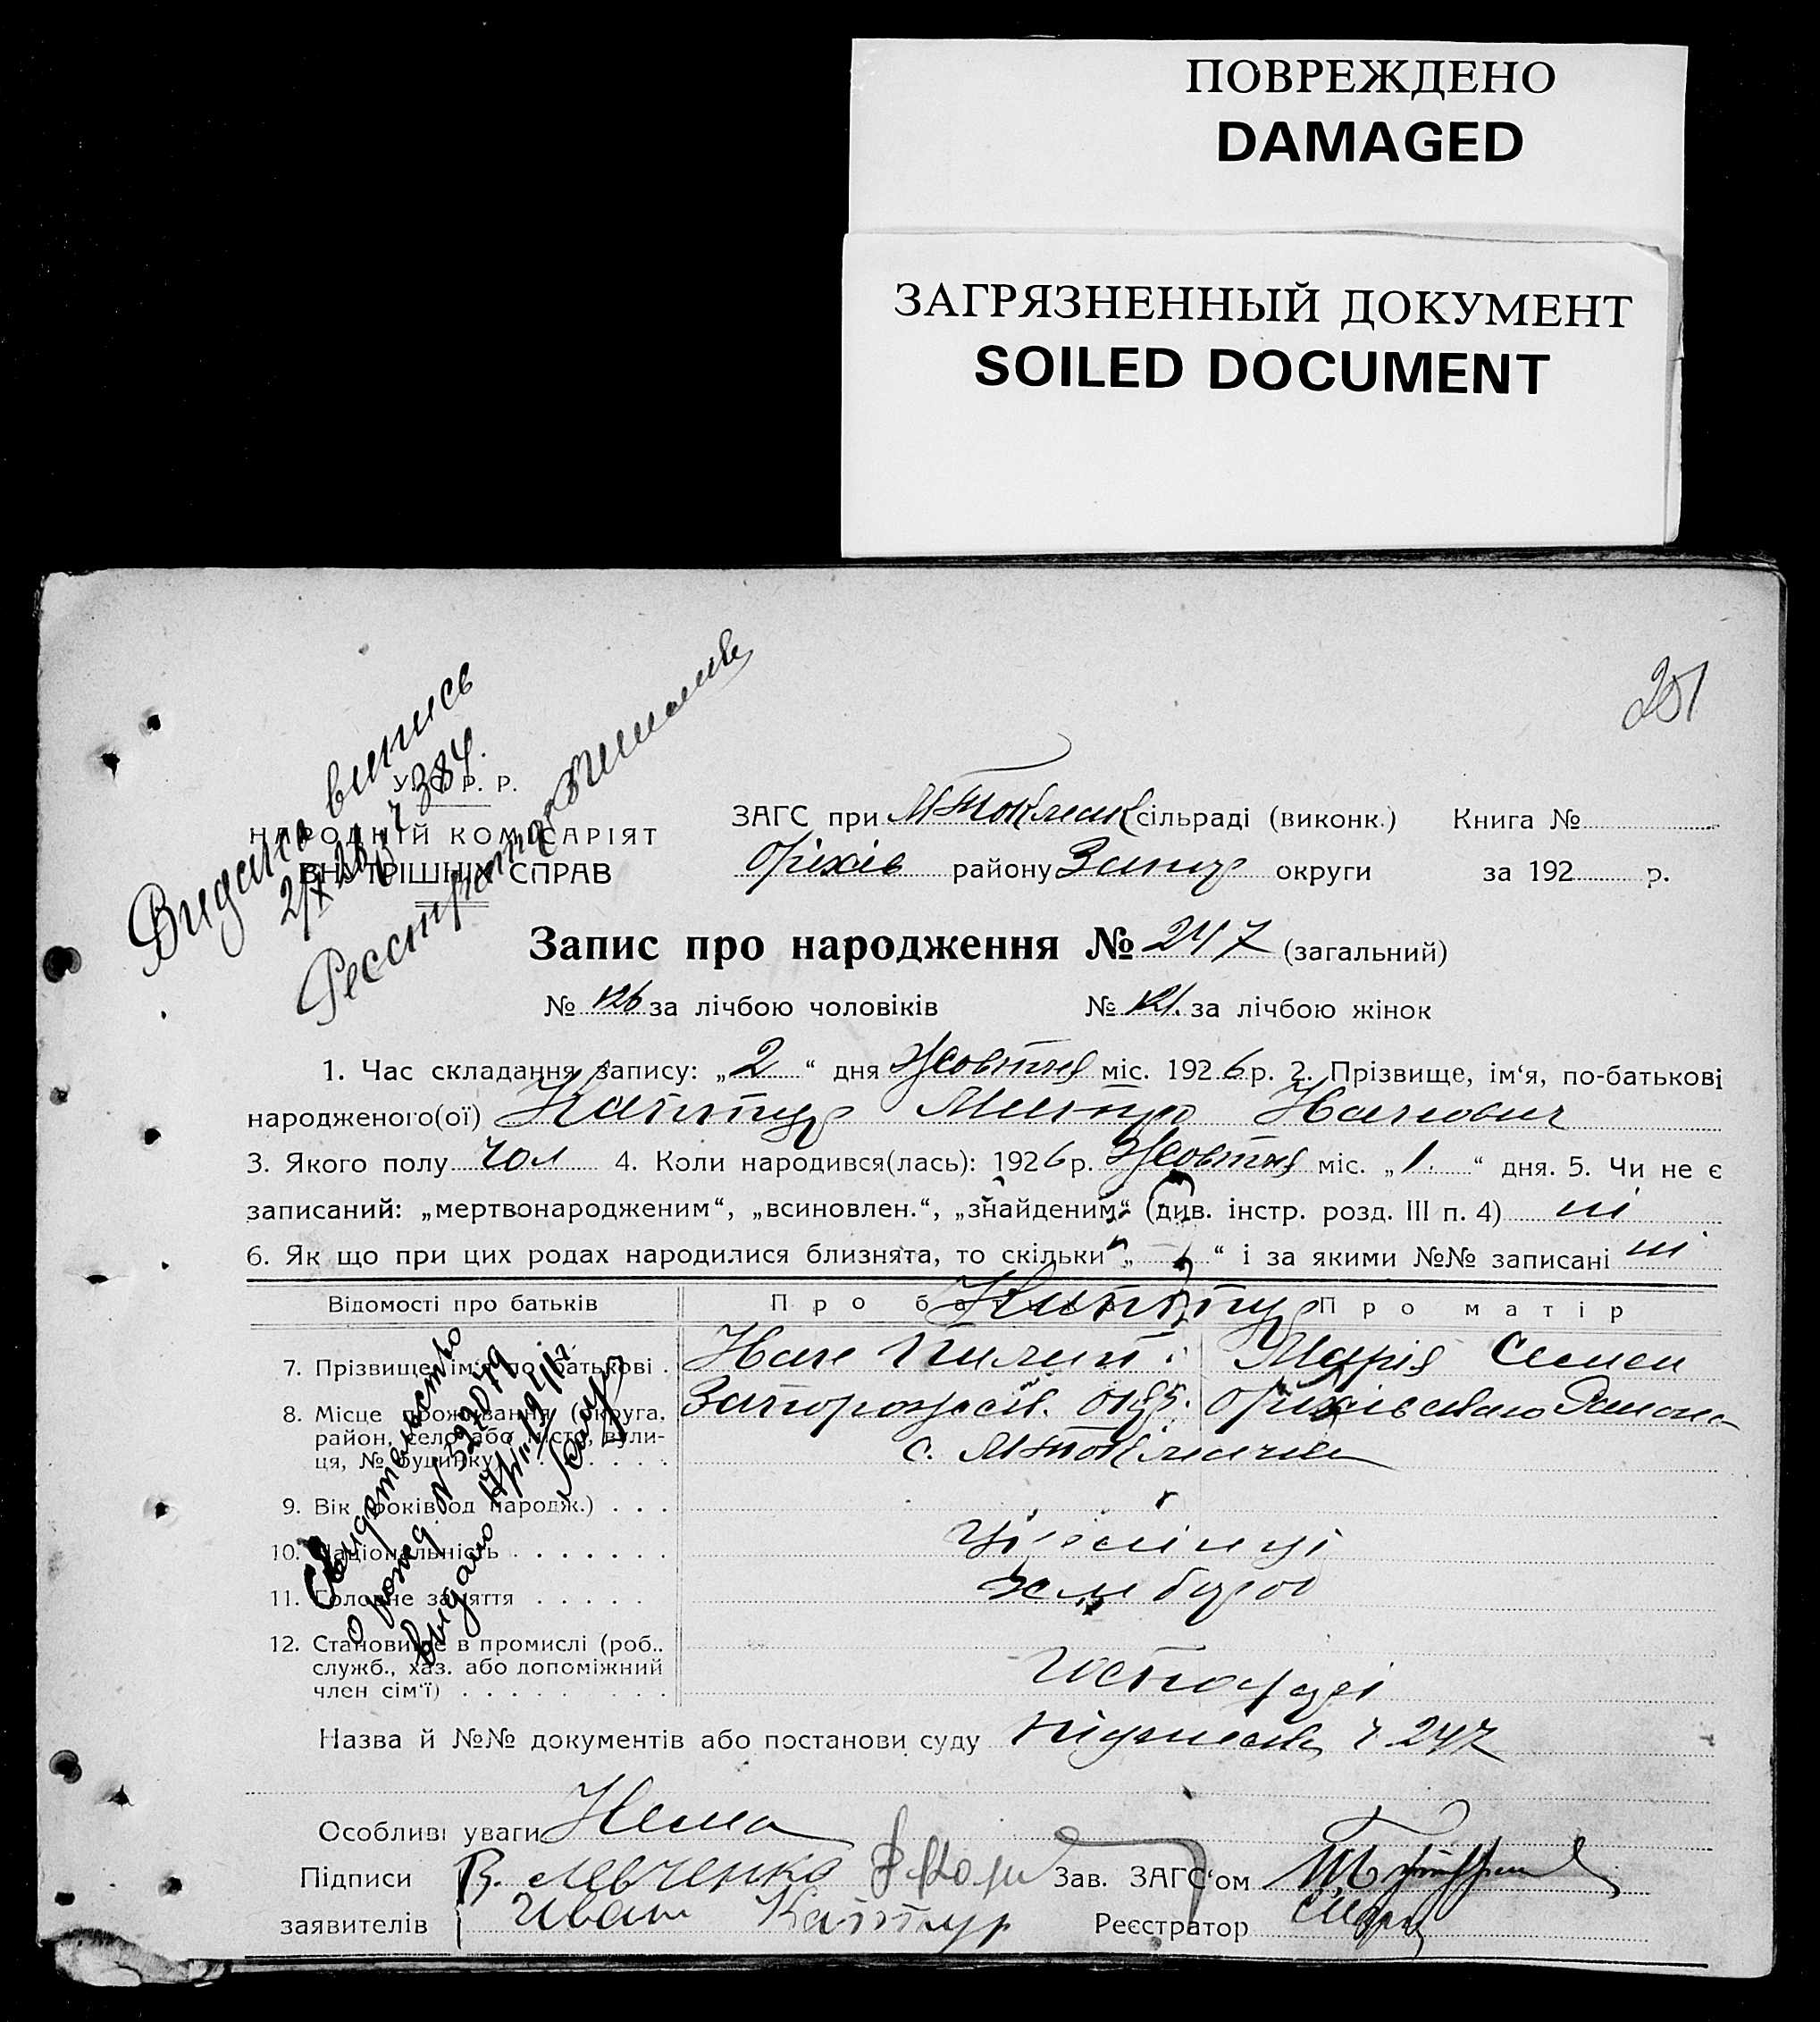 ПОВРЕЖДЕНО
DAMAGED
ЗАГРЯЗНЕННЫЙ ДОКУМЕНТ
SOILED DOCUMENT
251
Видано випись
У. С. Р. Р.
НАРОДНІЙ КОМІСАРІЯТ
ВНУТРІШНІХ СПРАВ
Реєстратор
ЗАГС при М Токмач сільраді (виконк.) Книга №
Оріхів району Запор округи за 192 р.
Запис про народження № 247 (загальний)
№ 126 за лічбою чоловіків № 121. за лічбою жінок
1. Час складання запису: „2“ дня Жовтня міс. 1926 р. 2. Прізвище, ім‘я, по-батькові
народженого(ої) Каптур Митро Іванович
3. Якого полу чол 4. Коли народився(лась): 1926 р. Жовтня міс. „1.“ дня. 5. Чи не є
записаний: „мертвонародженим“, „всиновлен.“, „знайденим“ (див. інстр. розд. III п. 4) ні
6. Як що при цих родах народилися близнята, то скільки „ “ і за якими №№ записані ні
Відомості про батьків Про батька Про матір
Каптур
7. Прізвище, ім‘я, по батькові . Іван Пилип. Марія Семен
8. Місце проживання (округа, район, село або місто, вулиця, № будинку) Запорожськ. окр. Оріхівського Району
с. М Токмачка
9. Вік (років од народж.) . . .
10. Національність . . . . . . . Українці
11. Головне заняття . . . . . хлібороб
12. Становище в промислі (роб., служб., хаз. або допоміжний член сім‘ї) Господарі
Свидетельство
о рожд. № 592079
выдано
Назва й №№ документів або постанови суду ч. 247
Особливі уваги Нема
Підписи В. Левченко Зав. ЗАГС‘ом
заявителів Иван Каптур Реєстратор